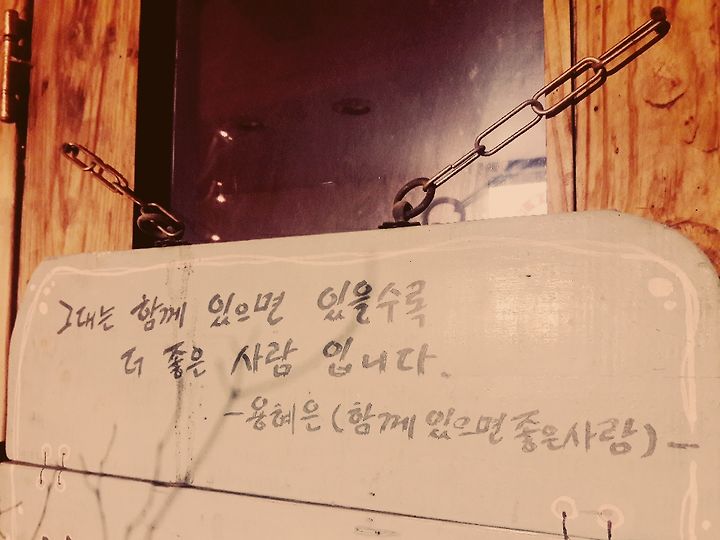 그대는 함께 있으면 있을수록
더 좋은 사람 입니다.
-용혜은 (함께 있으면 좋은사람) -